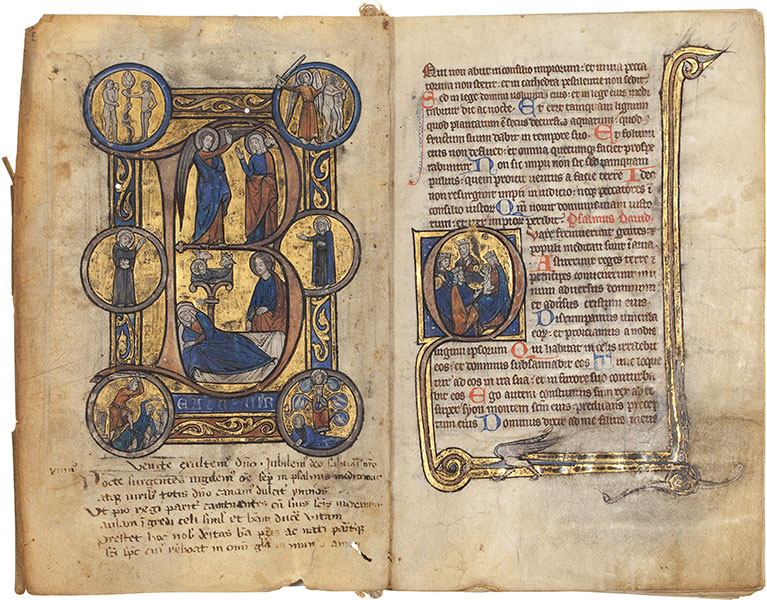 B
EATUS VIR
Venite exultem dno. Jubilem deo salutari nro
Nocte surgentes vigilem oes semp in psalmis meditemur
atque viribus totis dno canam dulcit ymnos
Ut pio regi parit canentes cu suis scis mereamur
aulam ingredi celi simul et bam duce vitam
Prestet hoc nob deitas ba pris ac nati pariterque
sci spc cui reboat in omi gla mundo am
Qui non abiit in consilio impiorum: et in uia pecca
torum non stetit: et in cathedra pestilentie non sedit
Sed in lege domini uoluntas eius: et in lege eius medi
tabitur die ac nocte. Et erit tanquam lignum
quod plantatum est secus decursus aquarum: quod
fructum suum dabit in tempore suo. Et folium
eius non defluet: et omnia quecunque faciet prospe
rabuntur. Non sic impii non sic sed tanquam
puluis: quem proicit uentus a facie terre. Ideo
non resurgunt impii in iudicio: neque peccatores in
consilio iustorum. Qm nouit dominus uiam iusto
rum: et iter impiorum peribit. Psalmus Dauid.
Quare fremuerunt gentes: et
populi meditati sunt inania.
Astiterunt reges terre et
principes conuenerunt in u
num: aduersus dominum
et aduersus cristum eius.
Dirumpamus uincula
eorum: et proiciamus a nobis
iugum ipsorum. Qui habitat in celis irridebit
eos: et dominus subsannabit eos. Tunc loque
tur ad eos in ira sua: et in furore suo conturba
bit eos. Ego autem constitutus sum rex ab eo
super syon montem scm eius: predicans precep
tum eius. Dominus dixit ad me filius meus